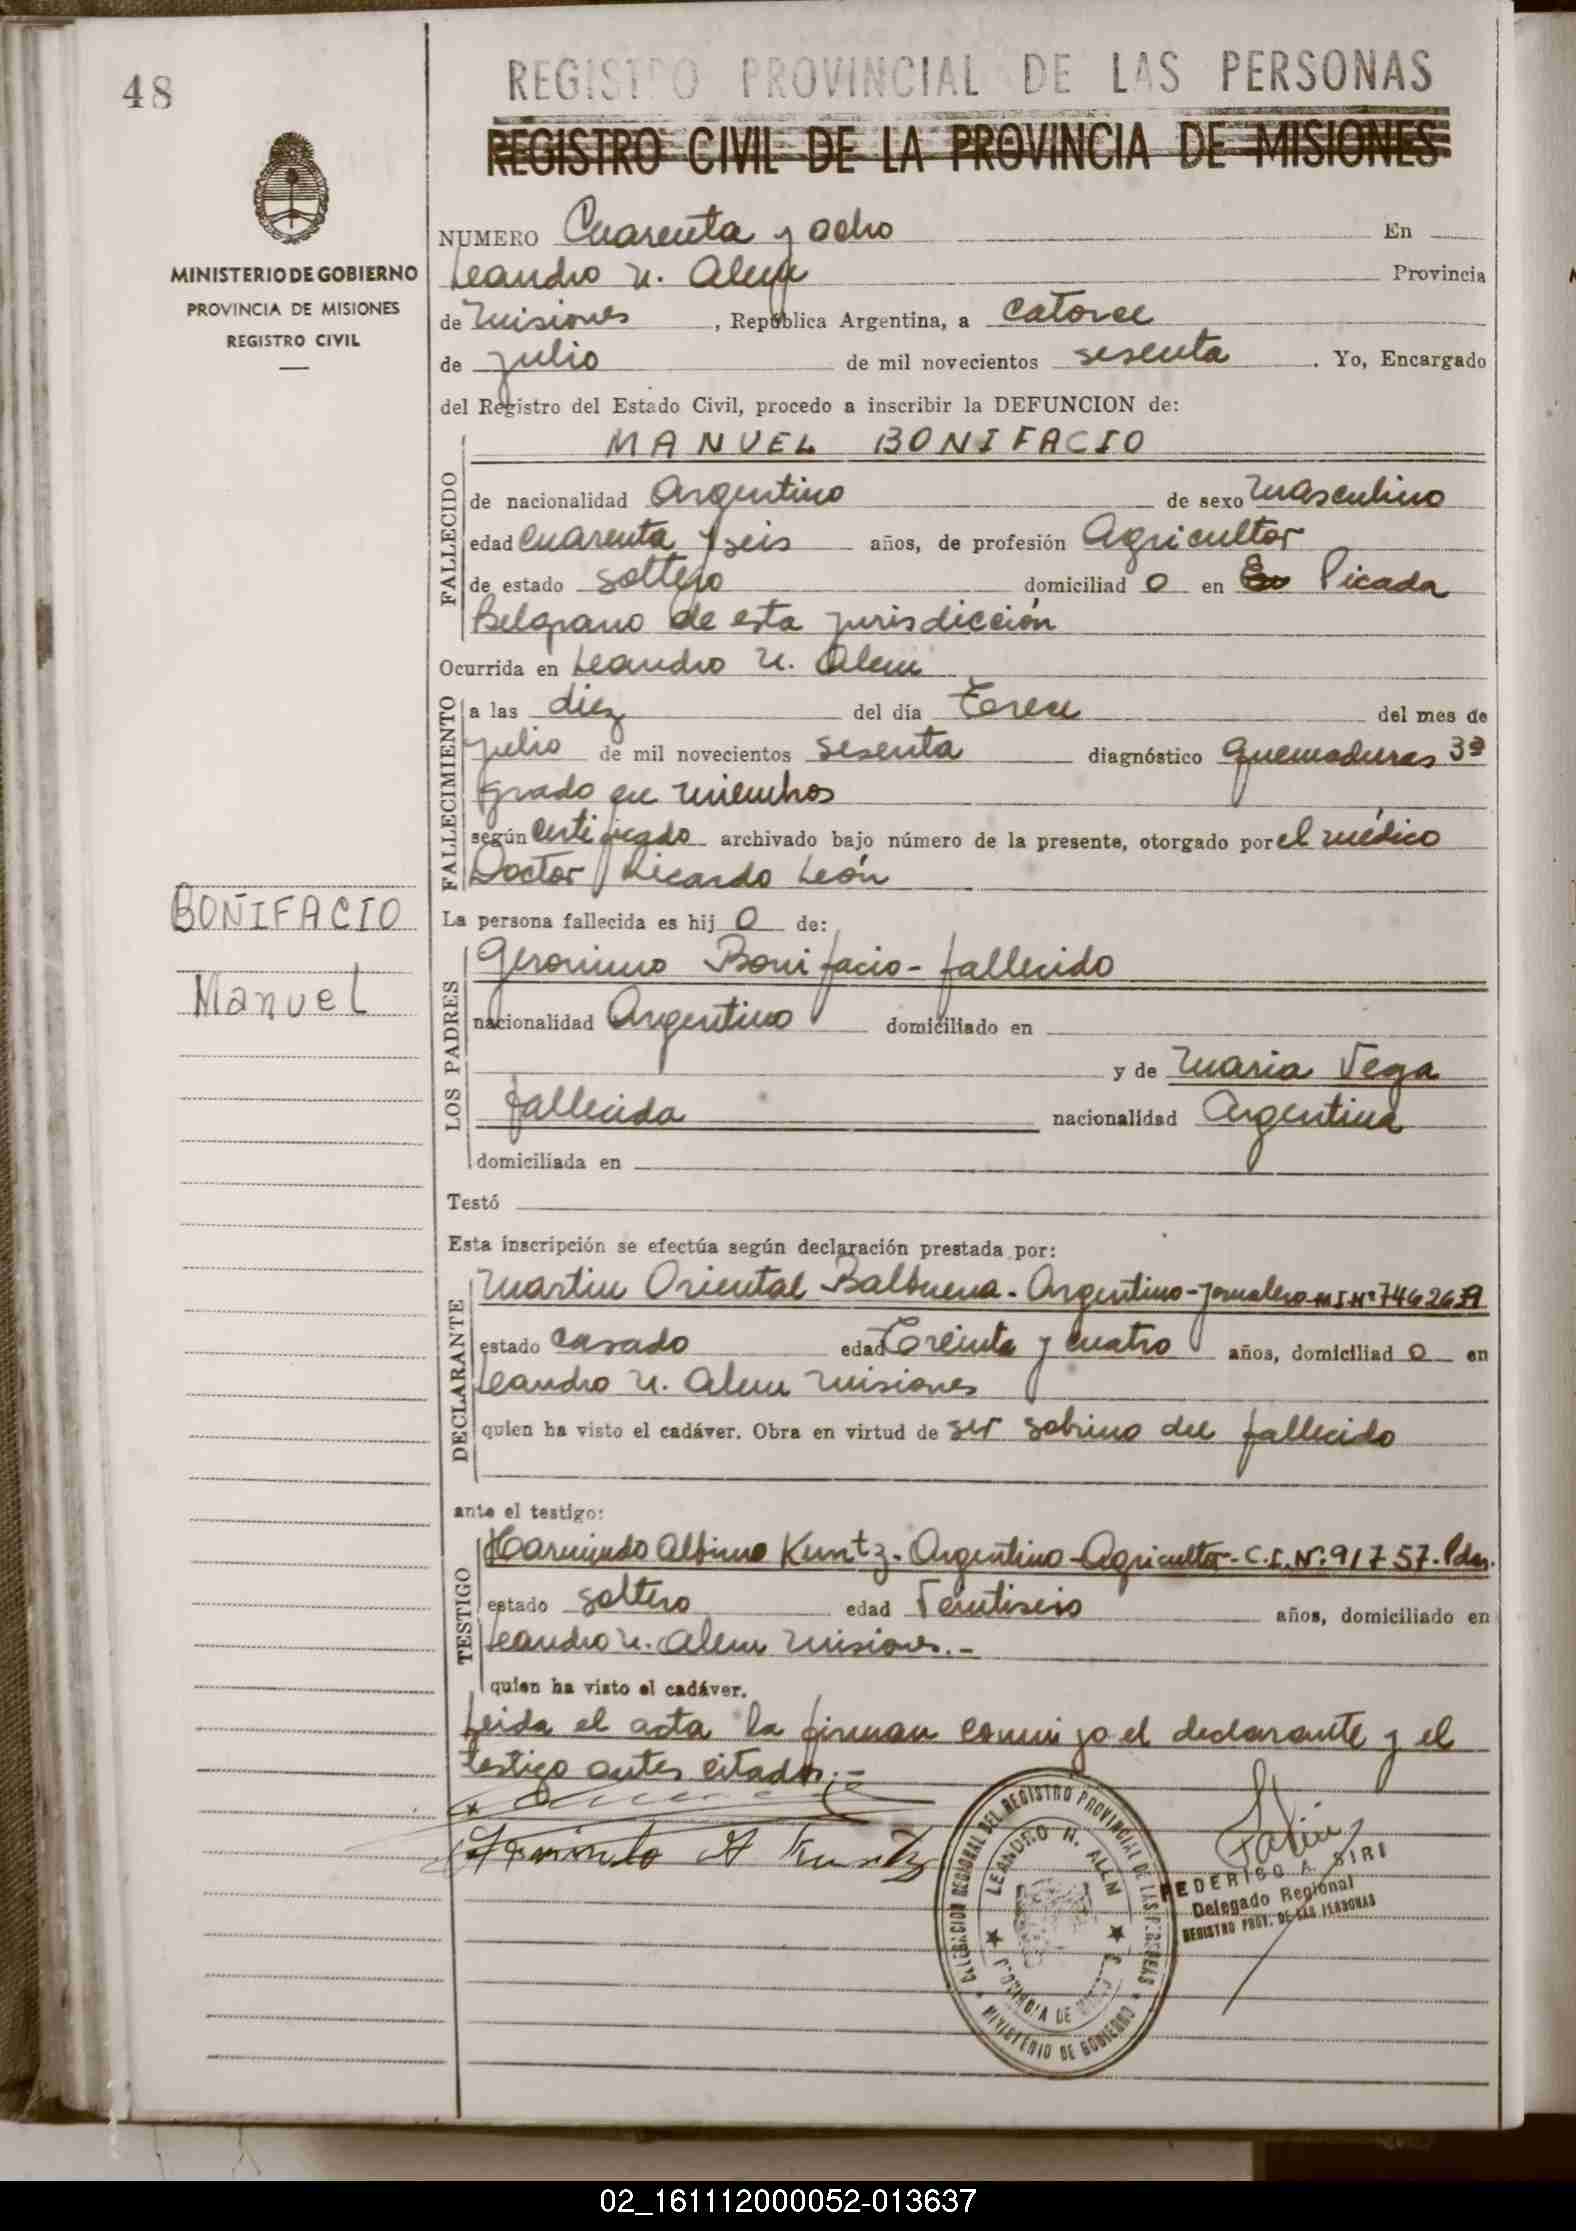 48
REGISTRO PROVINCIAL DE LAS PERSONAS
REGISTRO CIVIL DE LA PROVINCIA DE MISIONES
MINISTERIO DE GOBIERNO
PROVINCIA DE MISIONES
REGISTRO CIVIL
NUMERO Cuarenta y ocho En
Leandro N. Alem Provincia
de Misiones, República Argentina, a catorce
de julio de mil novecientos sesenta. Yo, Encargado
del Registro del Estado Civil, procedo a inscribir la DEFUNCION de:
MANUEL BONIFACIO
FALLECIDO
de nacionalidad Argentino de sexo Masculino
edad cuarenta y seis años, de profesión Agricultor
de estado soltero domiciliad o en Picada
Belgrano de esta jurisdicción
Ocurrida en Leandro N. Alem
FALLECIMIENTO
a las diez del día trece del mes de
julio de mil novecientos sesenta diagnóstico quemaduras 3ª
grado en miembros
según certificado archivado bajo número de la presente, otorgado por el médico
Doctor Ricardo León
BONIFACIO
Manuel
La persona fallecida es hij o de:
LOS PADRES
Geronimo Bonifacio - fallecido
nacionalidad Argentino domiciliado en
y de Maria Vega
fallecida nacionalidad Argentina
domiciliada en
Testó
Esta inscripción se efectúa según declaración prestada por:
DECLARANTE
Martin Oriental Balbuena - Argentino - jornalero M I Nº 746267
estado casado edad treinta y cuatro años, domiciliad o en
Leandro N. Alem Misiones
quien ha visto el cadáver. Obra en virtud de ser sobrino del fallecido
ante el testigo:
TESTIGO
Harmindo Albino Kuntz - Argentino - Agricultor - C.I. Nº. 91757. Pdas.
estado soltero edad Veintiseis años, domiciliado en
Leandro N. Alem Misiones.-
quien ha visto el cadáver.
Leida el acta la firman conmigo el declarante y el
testigo antes citados.-
Armindo A Kuntz
DELEGACION REGIONAL DEL REGISTRO PROVINCIAL DE LAS PERSONAS
LEANDRO N. ALEM
PROVINCIA DE MISIONES
MINISTERIO DE GOBIERNO
FEDERICO A. SIRI
Delegado Regional
REGISTRO PROV. DE LAS PERSONAS
02_161112000052-013637